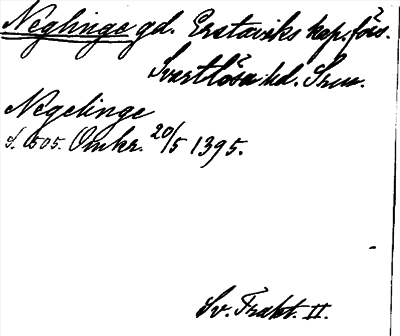 Neglinge gd. Erstaviks kap.förs.
Svartlösa hd. Srm.
Negelinge
S. 505. Omkr. 20/5 1395.
Sv. Trakt. II.